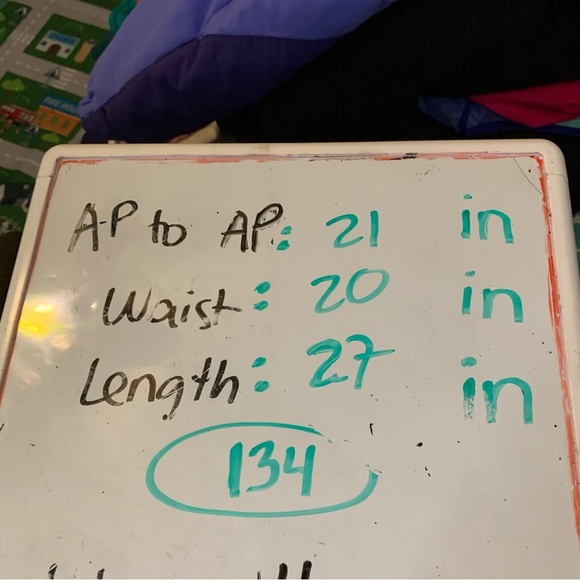 AP to AP: 21 in
Waist: 20 in
Length: 27 in
134